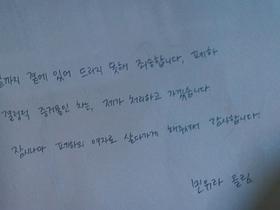 까지 곁에 있어 드리지 못해 죄송합니다, 폐하
결정적 증거물인 차는, 제가 처리하고 가겠습니다.
잠시나마 폐하의 여자로 살다가게 해주셔서 감사합니다.
민유라 드림